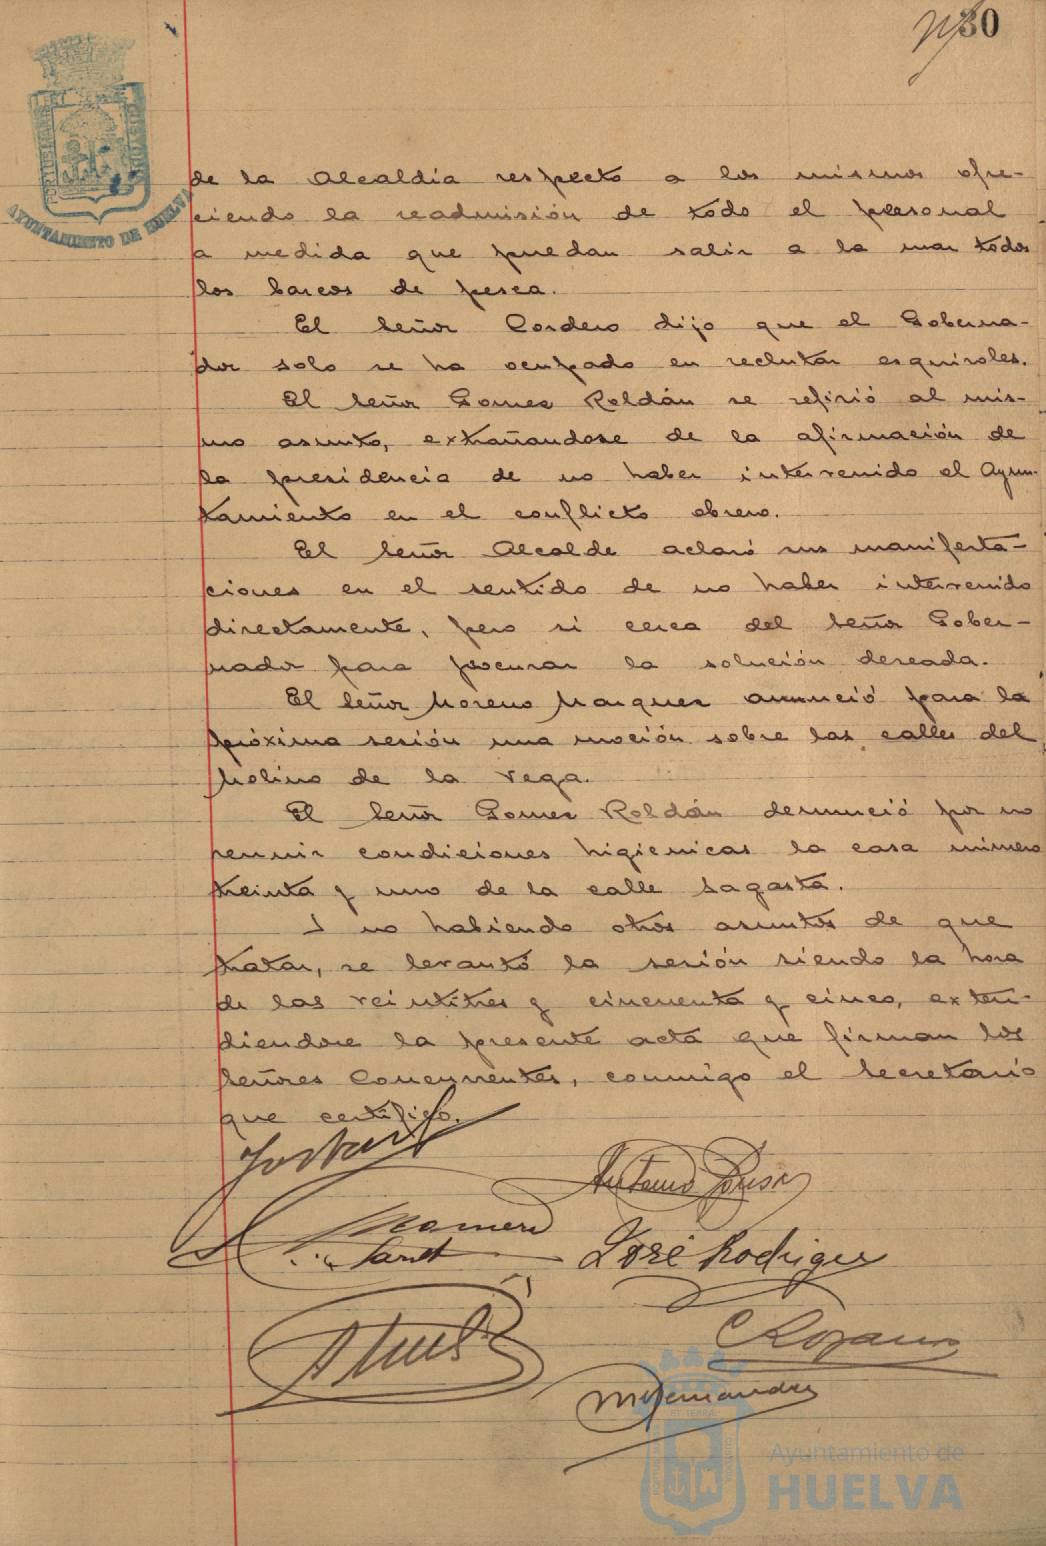 30
AYUNTAMIENTO DE HUELVA
de la Alcaldía respecto a los mismos ofre-
ciendo la readmisión de todo el personal
a medida que puedan salir a la mar todos
los barcos de pesca.
El Señor Cordero dijo que el Goberna-
dor solo se ha ocupado en reclutar esquiroles.
El Señor Gomez Roldán se refirió al mis-
mo asunto, extrañandose de la afirmación de
la presidencia de no haber intervenido el Ayun-
tamiento en el conflicto obrero.
El Señor Alcalde aclaró sus manifesta-
ciones en el sentido de no haber intervenido
directamente, pero si cerca del Señor Gober-
nador para procurar la solución deseada.
El Señor Moreno Marquez anunció para la
próxima sesión una moción sobre las calles del
Molino de la Vega.
El Señor Gomez Roldán denunció por no
reunir condiciones higienicas la casa número
treinta y uno de la calle Sagasta.
Y no habiendo otros asuntos de que
tratar, se levantó la sesión siendo la hora
de las veintitres y cincuenta y cinco, exten-
diendose la presente acta que firman los
Señores Concurrentes, conmigo el Secretario
que certifico.
Antonio
José Rodriguez
Ayuntamiento de
HUELVA